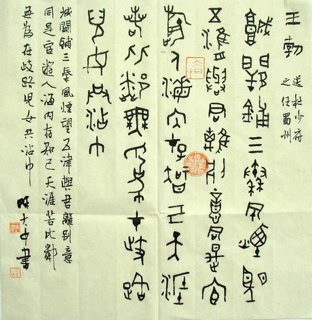 王勃
送杜少府
之任蜀州
城闕輔三秦風煙望
五津與君離別意同是宦
遊人海內存知己天涯
若比鄰無為在歧路
兒女共沾巾
城闕輔三秦風煙望五津與君離別意
同是宦遊人海內存知己天涯若比鄰
無為在歧路兒女共沾巾
書